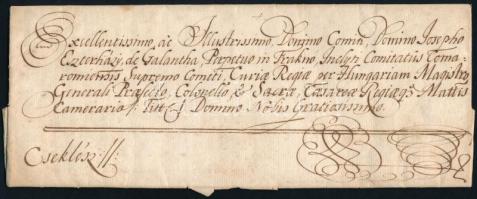 Excellentissimo, ac Illustrissimo, Domino Comiti, Domino Josepho
Eszterházy, de Galantha Perpetuo in Frakno, Inclyti Comitatûs Coma-
romiensis Supremo Comiti, Curiæ Regiæ per Hungariam Magistro,
Generali Præfecto, Colonello, & Sacræ, Cæsareæ Regiæq; Mattis
Camerario Domino Nobis Gratiosissimo.
Cseklész